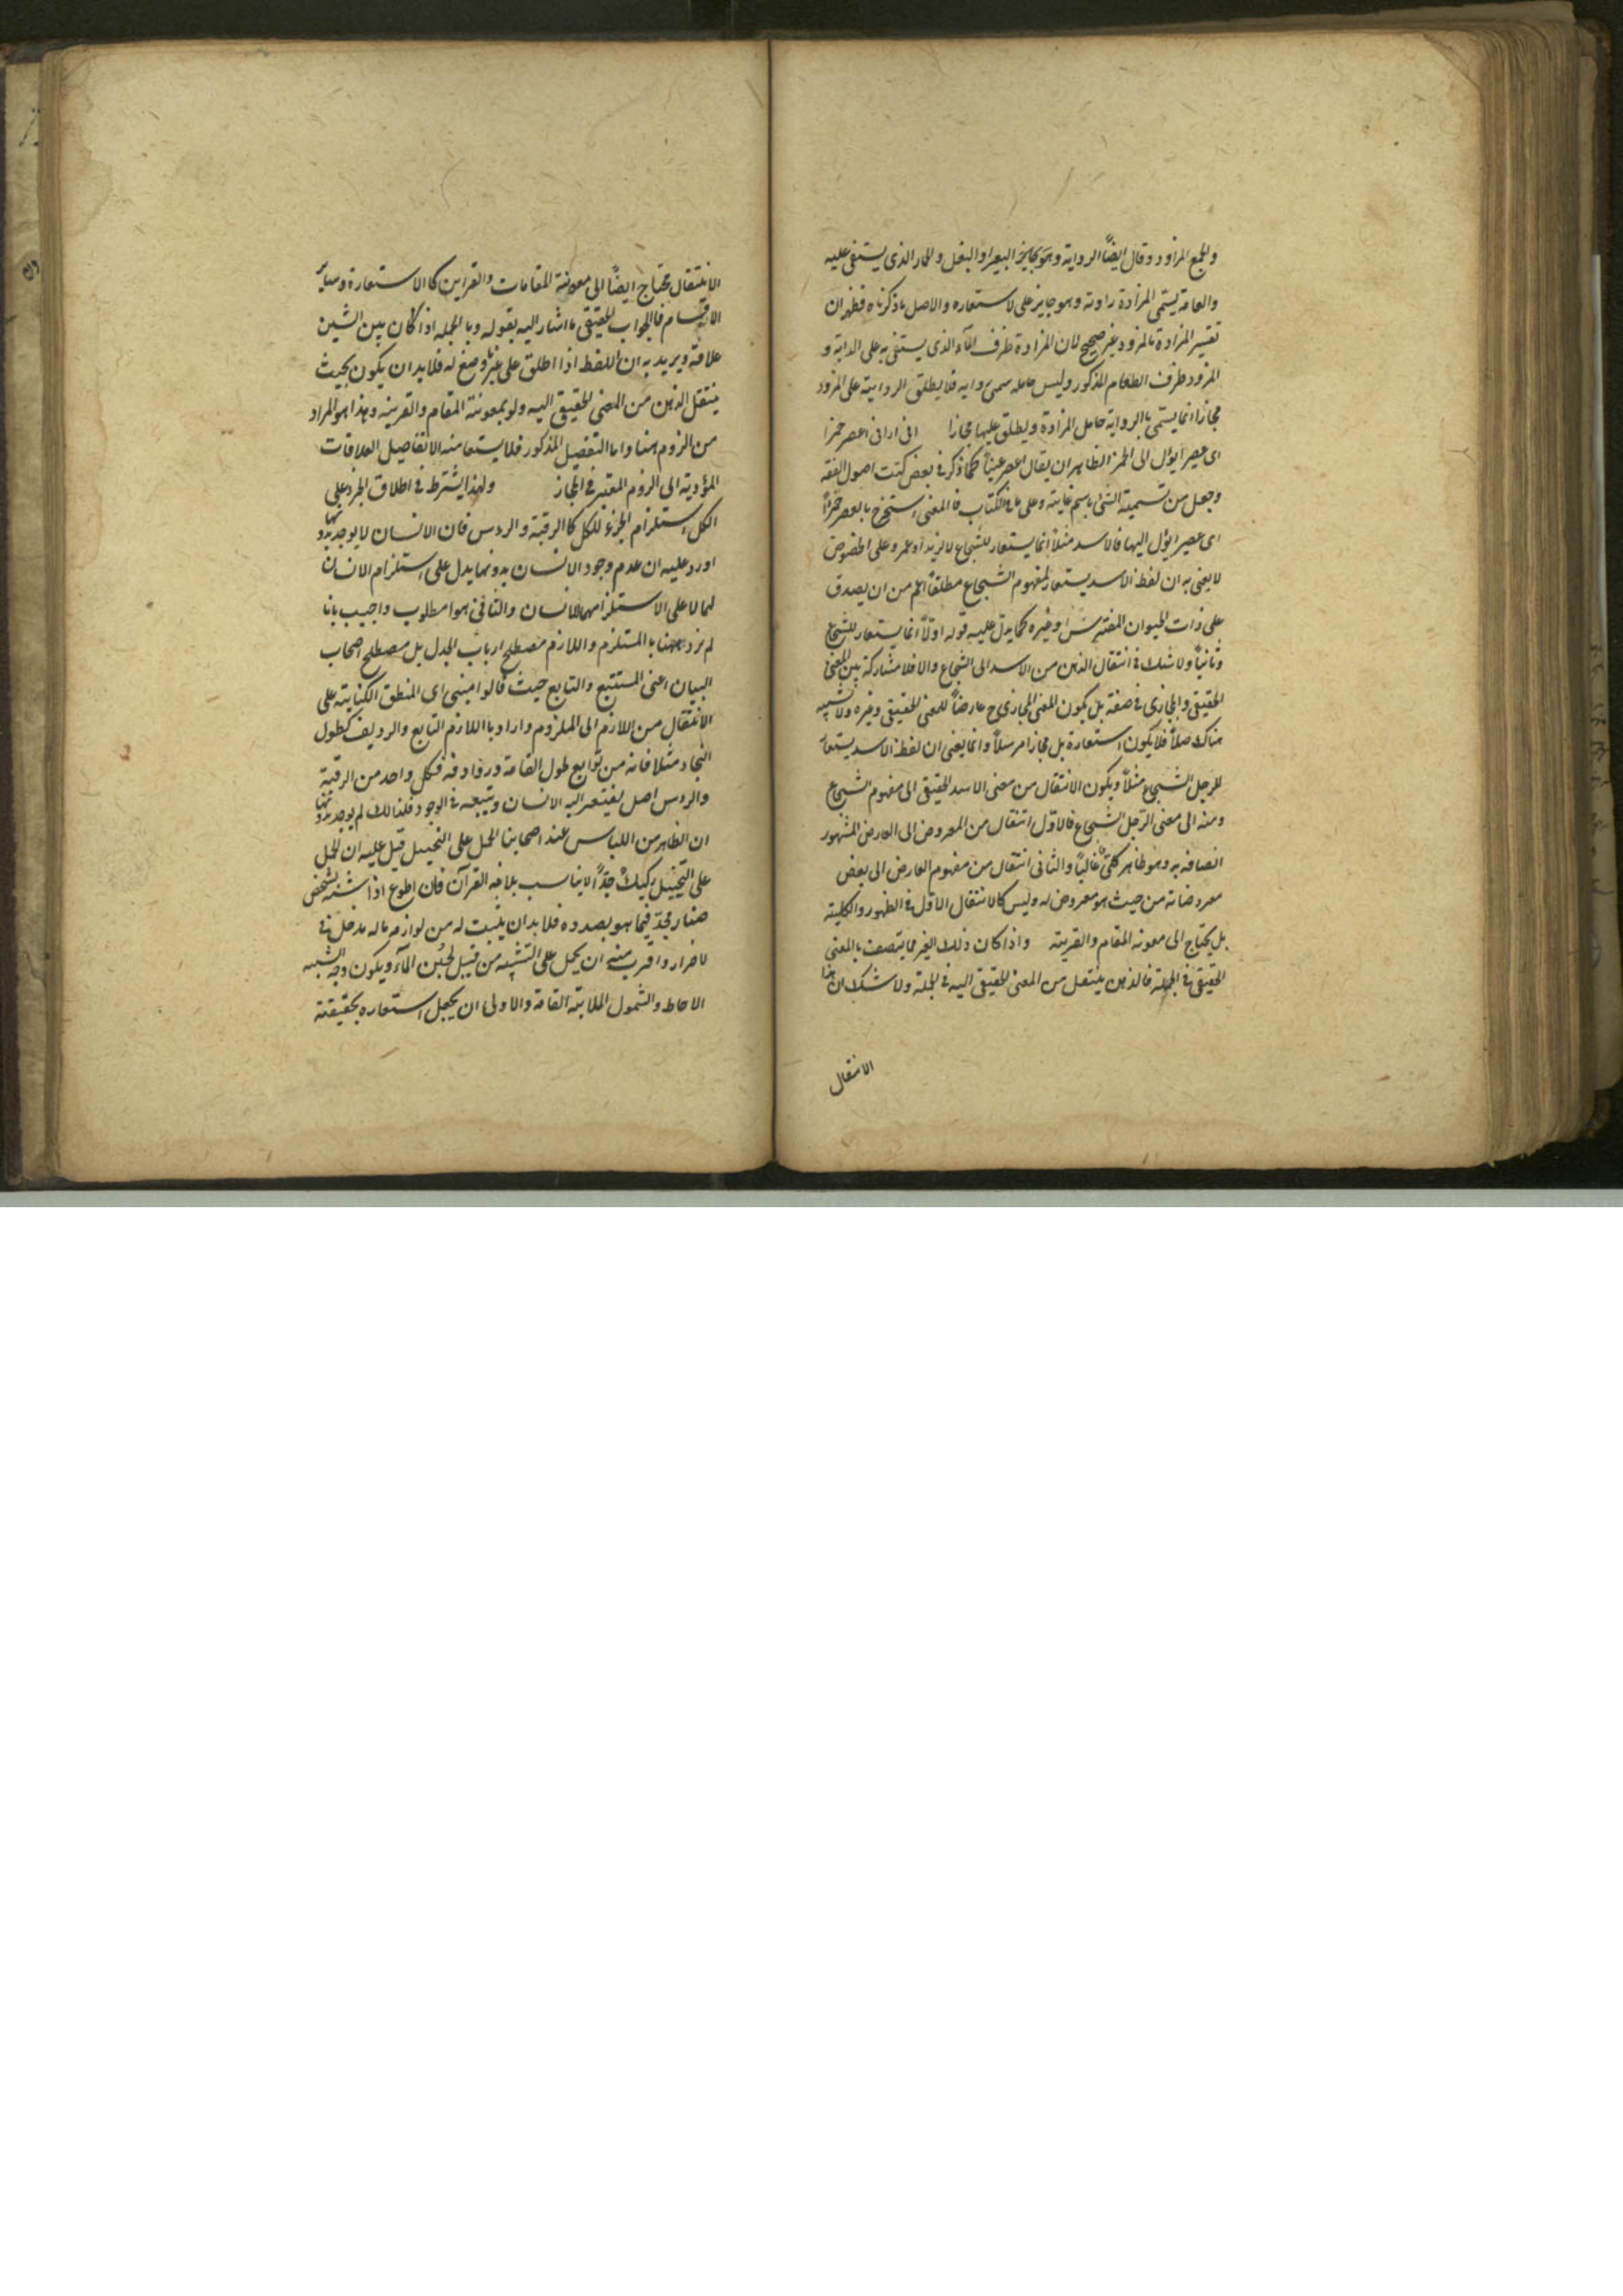 والجمع المزاود وقال ايضاً الرواية وهو البعير او البغل والحمار الذى يستقى عليه
والعامة يسمى المزادة راوية وهو جايز على لاستعاره والاصل ما ذكرناه فظهر ان
تفسير المزادة بالمزود غير صحيح لان المزادة ظرف الماء الذى يستقى به على الدابة و
المزود ظرف الطعام المذكور وليس حامله سمى رواية فلا يطلق الرواية على المزود
مجازا انما يسمى بالرواية حامل المزادة ويطلق عليها مجازا انى ارانى اعصر خمرا
اى عصيرا يؤل الى الخمر الظاهر ان يقال اعصر عنباً كما ذكر فى بعض كتب اصول الفقه
وجعل من تسمية الشئ باسم غايته وعلى ما فى الكتاب فالمعنى استخرج بالعصر خمراً
اى عصيرا يؤل اليها فالاسد مثلاً انما يستعار للشجاع لا لزيد او عمرو على الخصوص
لا يعنى به ان لفظ الاسد يستعار لمفهوم الشجاع مطلقاً اعم من ان يصدق
على ذات الحيوان المفترس او غيره كما يدل عليه قوله اولاً انما يستعار للشجاع
وثانياً ولا شك فى انتقال الذهن من الاسد الى الشجاع والا فلا مشاركة بين المعنى
الحقيقى والمجازى فى صفة بل يكون المعنى المجازى ح عارضاً للمعنى الحقيقى وغيره ولا تشبيه
هناك اصلاً فلا يكون استعارة بل مجازا مرسلاً وانما يعنى ان لفظ الاسد يستعار
للرجل الشجاع مثلاً ويكون الانتقال من معنى الاسد الحقيقى الى مفهوم الشجاع
ومنه الى معنى الرجل الشجاع فالاول انتقال من المعروض الى العارض المشهور
اتصافه به وهو ظاهر كلىّ غالباً والثانى انتقال من مفهوم العارض الى بعض
معروضاته من حيث هو معروض له وليس كالانتقال الاول فى الظهور والكلية
بل يحتاج الى معونه المقام والقرينة واذا كان ذلك الغير مما يتصف بالمعنى
الحقيقى فى الجملة فالذهن ينتقل من المعنى الحقيقى اليه فى الجملة ولا شك ان هذا
الانتقال
الانتقال محتاج ايضاً الى معونة المقامات والقراين كالاستعارة وساير
الاقسام فالجواب الحقيقى ما اشار اليه بقوله وبالجمله اذا كان بين الشيئين
علاقة ويريد به ان اللفظ اذا اطلق على غير ما وضع له فلا بد ان يكون بحيث
ينتقل الذهن من المعنى الحقيقى اليه ولو بمعونة المقام والقرينه وهذا هو المراد
من الزوم هنا واما التفصيل المذكور فلا يستفا منه الا تفاصيل العلاقات
المؤدية الى الزوم المعتبر فى المجاز ولهذا يشترط فى اطلاق الجزء على
الكل استلزام الجزء للكل كالرقبة والروس فان الانسان لا يوجد بدونها
اورد عليه ان عدم وجود الانسان بدونهما يدل على استلزام الانسان
لهما لا على الاستلزامهما للانسان والثانى هو المطلوب واجيب بانا
لم نرد ههنا بالمستلزم واللازم مصطلح ارباب الجدل بل مصطلح اصحاب
البيان اعنى المستتبع والتابع حيث قالوا مبنى اى المنطق الكناية على
الانتقال من اللازم الى الملزوم وارادوا باللازم التابع والرديف كطول
النجاد مثلا فانه من توابع طول القامة وروادفه فكل واحد من الرقبة
والروس اصل يفتقر اليه الانسان ويتبعه فى الوجود فلذالك لم يوجد بدونها
ان الظاهر من اللباس عند اصحابنا الحمل على التخييل قيل عليه ان الحمل
على التخييل ركيك جدّاً لا يناسب بلاغة القرآن فان الجوع اذا شبه بشخص
ضار مجدّ فيما هو بصدده فلا بد ان يثبت له من لوازمه ما له مدخل فى
لاضرار واقرب منه ان يحمل على التشبيه من قبيل لجين الماء ويكون وجه الشبه
الاحاطة والشمول الملابة القامة والاولى ان يجعل استعاره تحقيقية